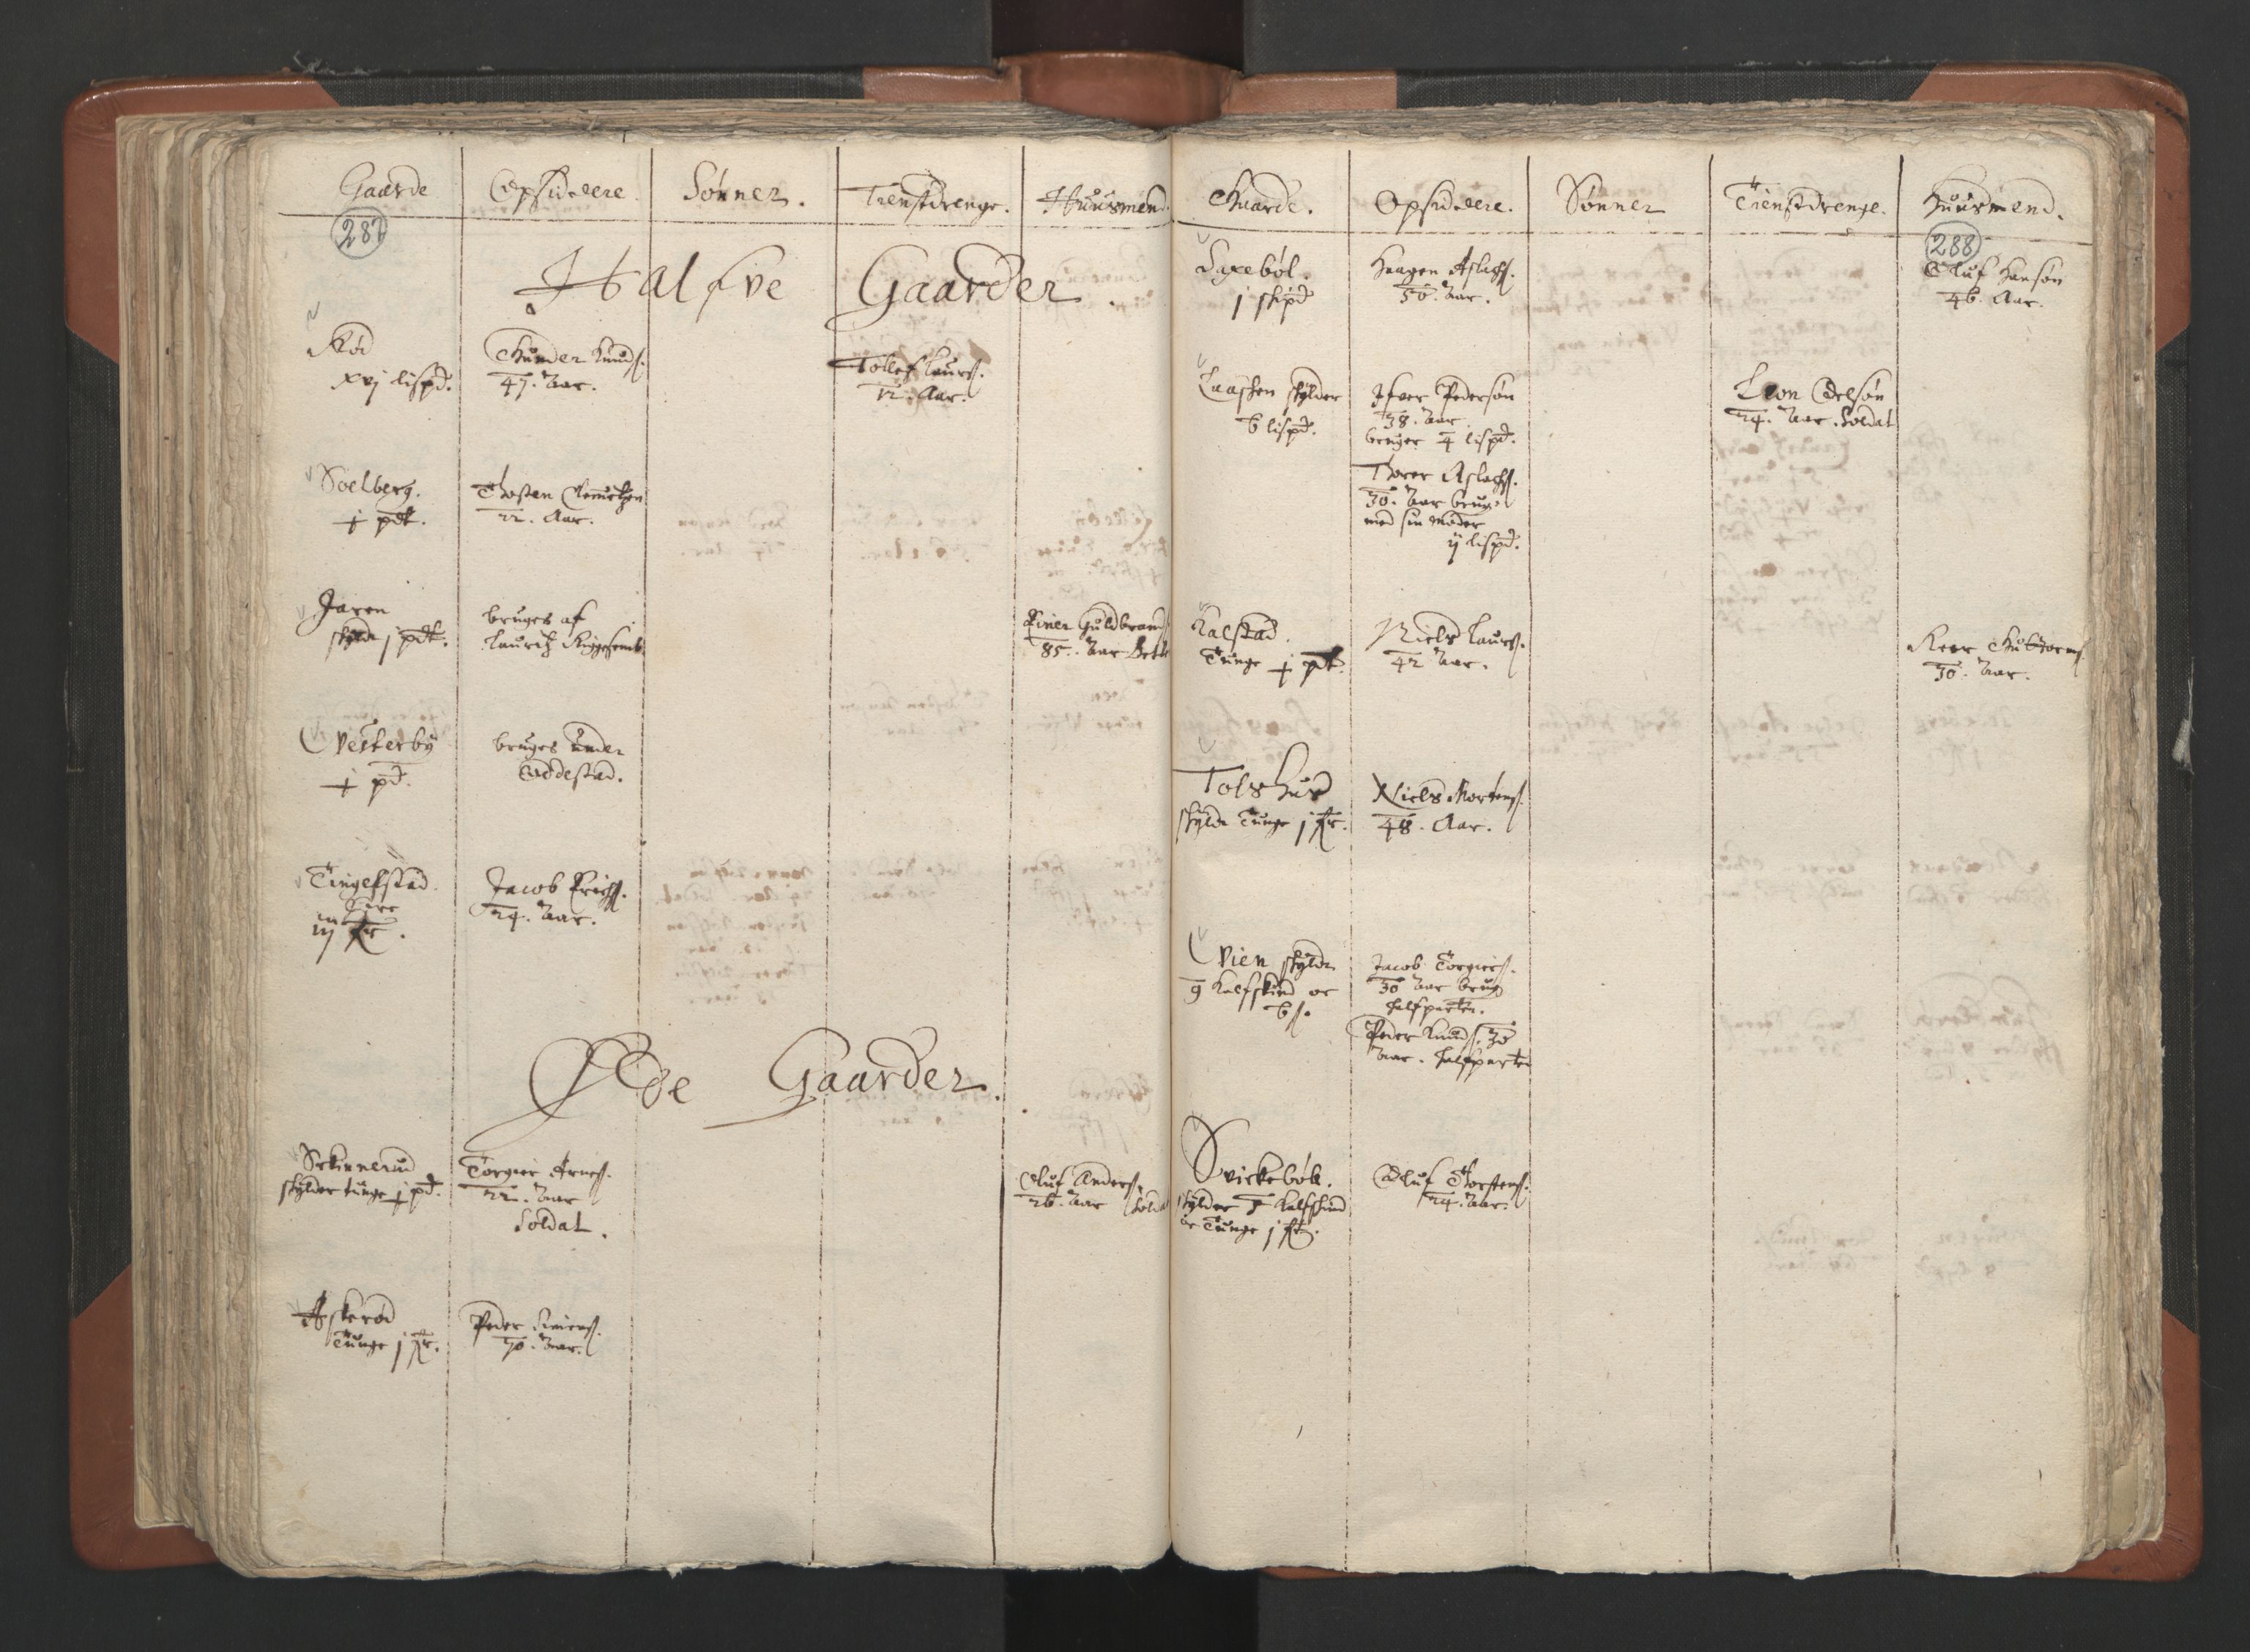 Gaarde Opsiddere. Sønner. Tienstdrenge. Huusmend.
287
Halfve Gaarder.
Rød
xvj lispd.
Gunder Knuds.
47. Aar.
Tollef Laurs.
12. Aar.
Soelberg.
j pd.
Thosten
22. Aar.
Jaren
skylder j pd.
bruges af
Lauritz
Einer Guldbrands.
85. Aar
Vesterby
j pd.
bruges under
Oddestad.
Tingelstad
iij
Jacob Erichs.
24. Aar.
Øde Gaarder.
Skinnerud
skylder tunge j pd.
Torgier Arnes.
22. Aar
Soldat.
Oluf Anders.
26. Aar Soldat
Askerød
Tunge j fr.
Peder
70. Aar.
Gaarde. Opsiddere. Sønner Tienstdrenge. Huusmend.
288
Saxebøl.
j skpd
Haagen Aslachs.
50. Aar.
Oluf Hansøn
46. Aar.
skylder
6 lispd.
Ifver Pedersøn
38. Aar.
bruger 4 lispd.
Thorer Aslachs.
30. Aar brug.
med sin moder
ij lispd.
Oelsøn
24. Aar. Soldat
Kalstad.
Tunge j pd.
Niels Laurs.
42 Aar.
30. Aar.
Tolshus
skylder Tunge j fr.
Niels Mortens.
48. Aar.
Vien skylder
9 Kalfskind oc
6 s.
Jacob Torgiers.
30 Aar brug.
halfparten.
Peder Knuds. 30
Aar. halfparten
Svickebøl.
skylder Kalfskind
oc Tunge j fr.
Oluf Torstens.
24. Aar.